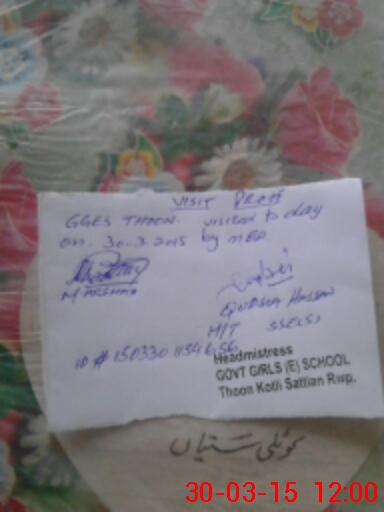 VISIT PROFF
GGES THOON. visited to day
on. 30-3-2015 by MEA.
M ARSHAD
H/T
ID # 150330 1154656
Headmistress
GOVT GIRLS (E) SCHOOL
Thoon Kotli Sattian Rwp.
کوٹلی ستیاں
30-03-15 12:00